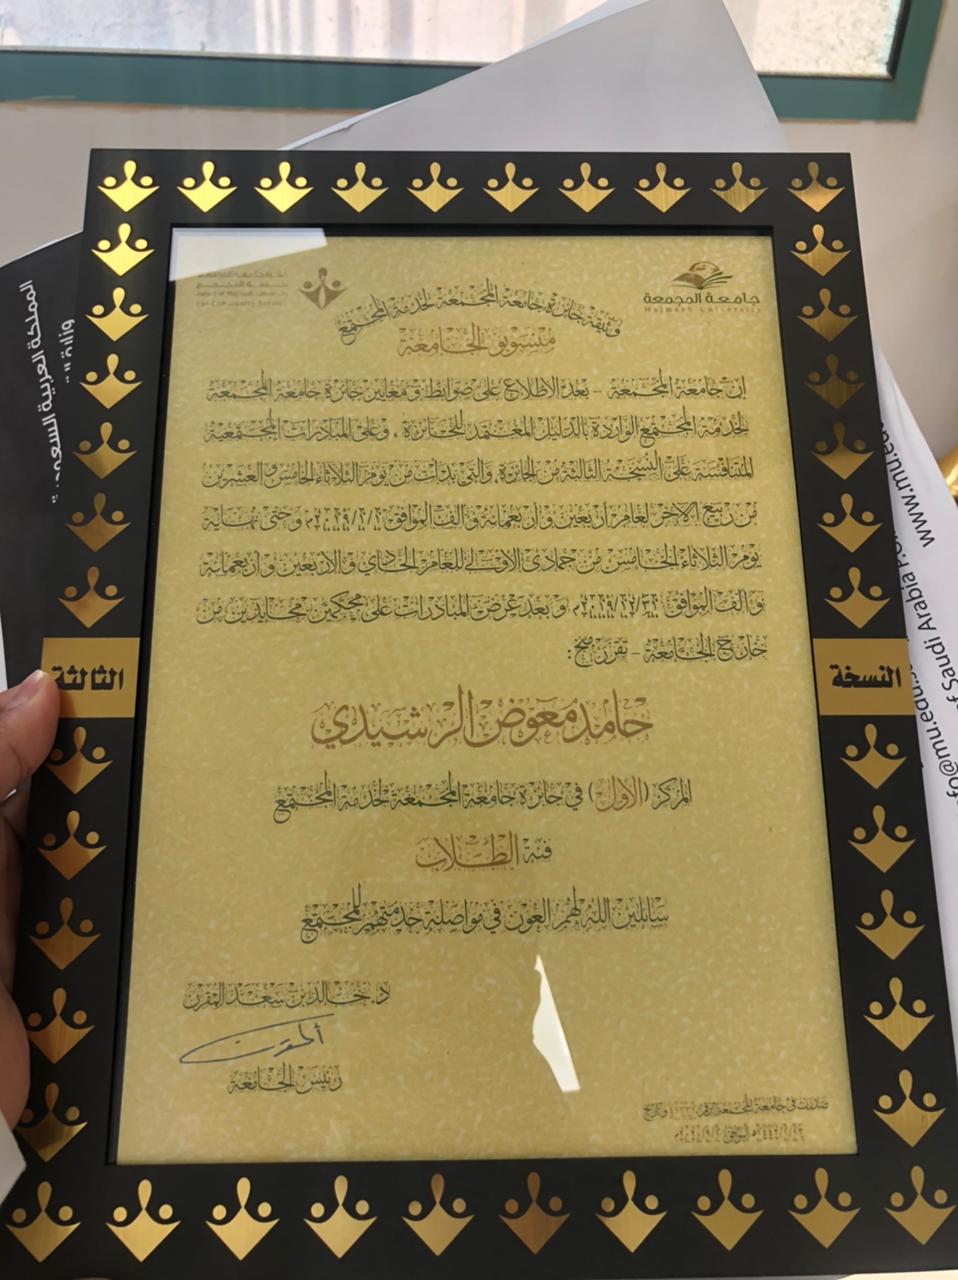 جامعة المجمعة
Majmaah University
وثيقة جائزة جامعة المجمعة لخدمة المجتمع
منسوبو الجامعة
إن جامعة المجمعة - بعد الاطلاع على ضوابط ومعايير جائزة جامعة المجمعة
لخدمة المجتمع الواردة بالدليل المعتمد للجائزة ، وعلى المبادرات المجتمعية
المتنافسة على النسخة الثالثة من الجائزة، والتي بدأت من يوم الثلاثاء الخامس والعشرين
من ربيع الآخر لعام أربعين وأربعمائة وألف الموافق وحتى نهاية
يوم الثلاثاء الخامس من جمادى الأولى للعام الحادي والأربعين وأربعمائة
وألف الموافق وبعد عرض المبادرات على محكمين محايدين من
خارج الجامعة - تقرر منح :
حامد معوض الرشيدي
المركز (الأول) في جائزة جامعة المجمعة لخدمة المجتمع
فئة الطلاب
سائلين الله لهم العون في مواصلة خدمتهم للمجتمع
د. خالد بن سعد المقرن
رئيس الجامعة
صدرت في جامعة المجمعة برقم وتاريخ
الموافق
النسخة
الثالثة
المملكة العربية السعودية
وزارة
www.mu.edu
of Saudi Arabia
info@mu.edu.s